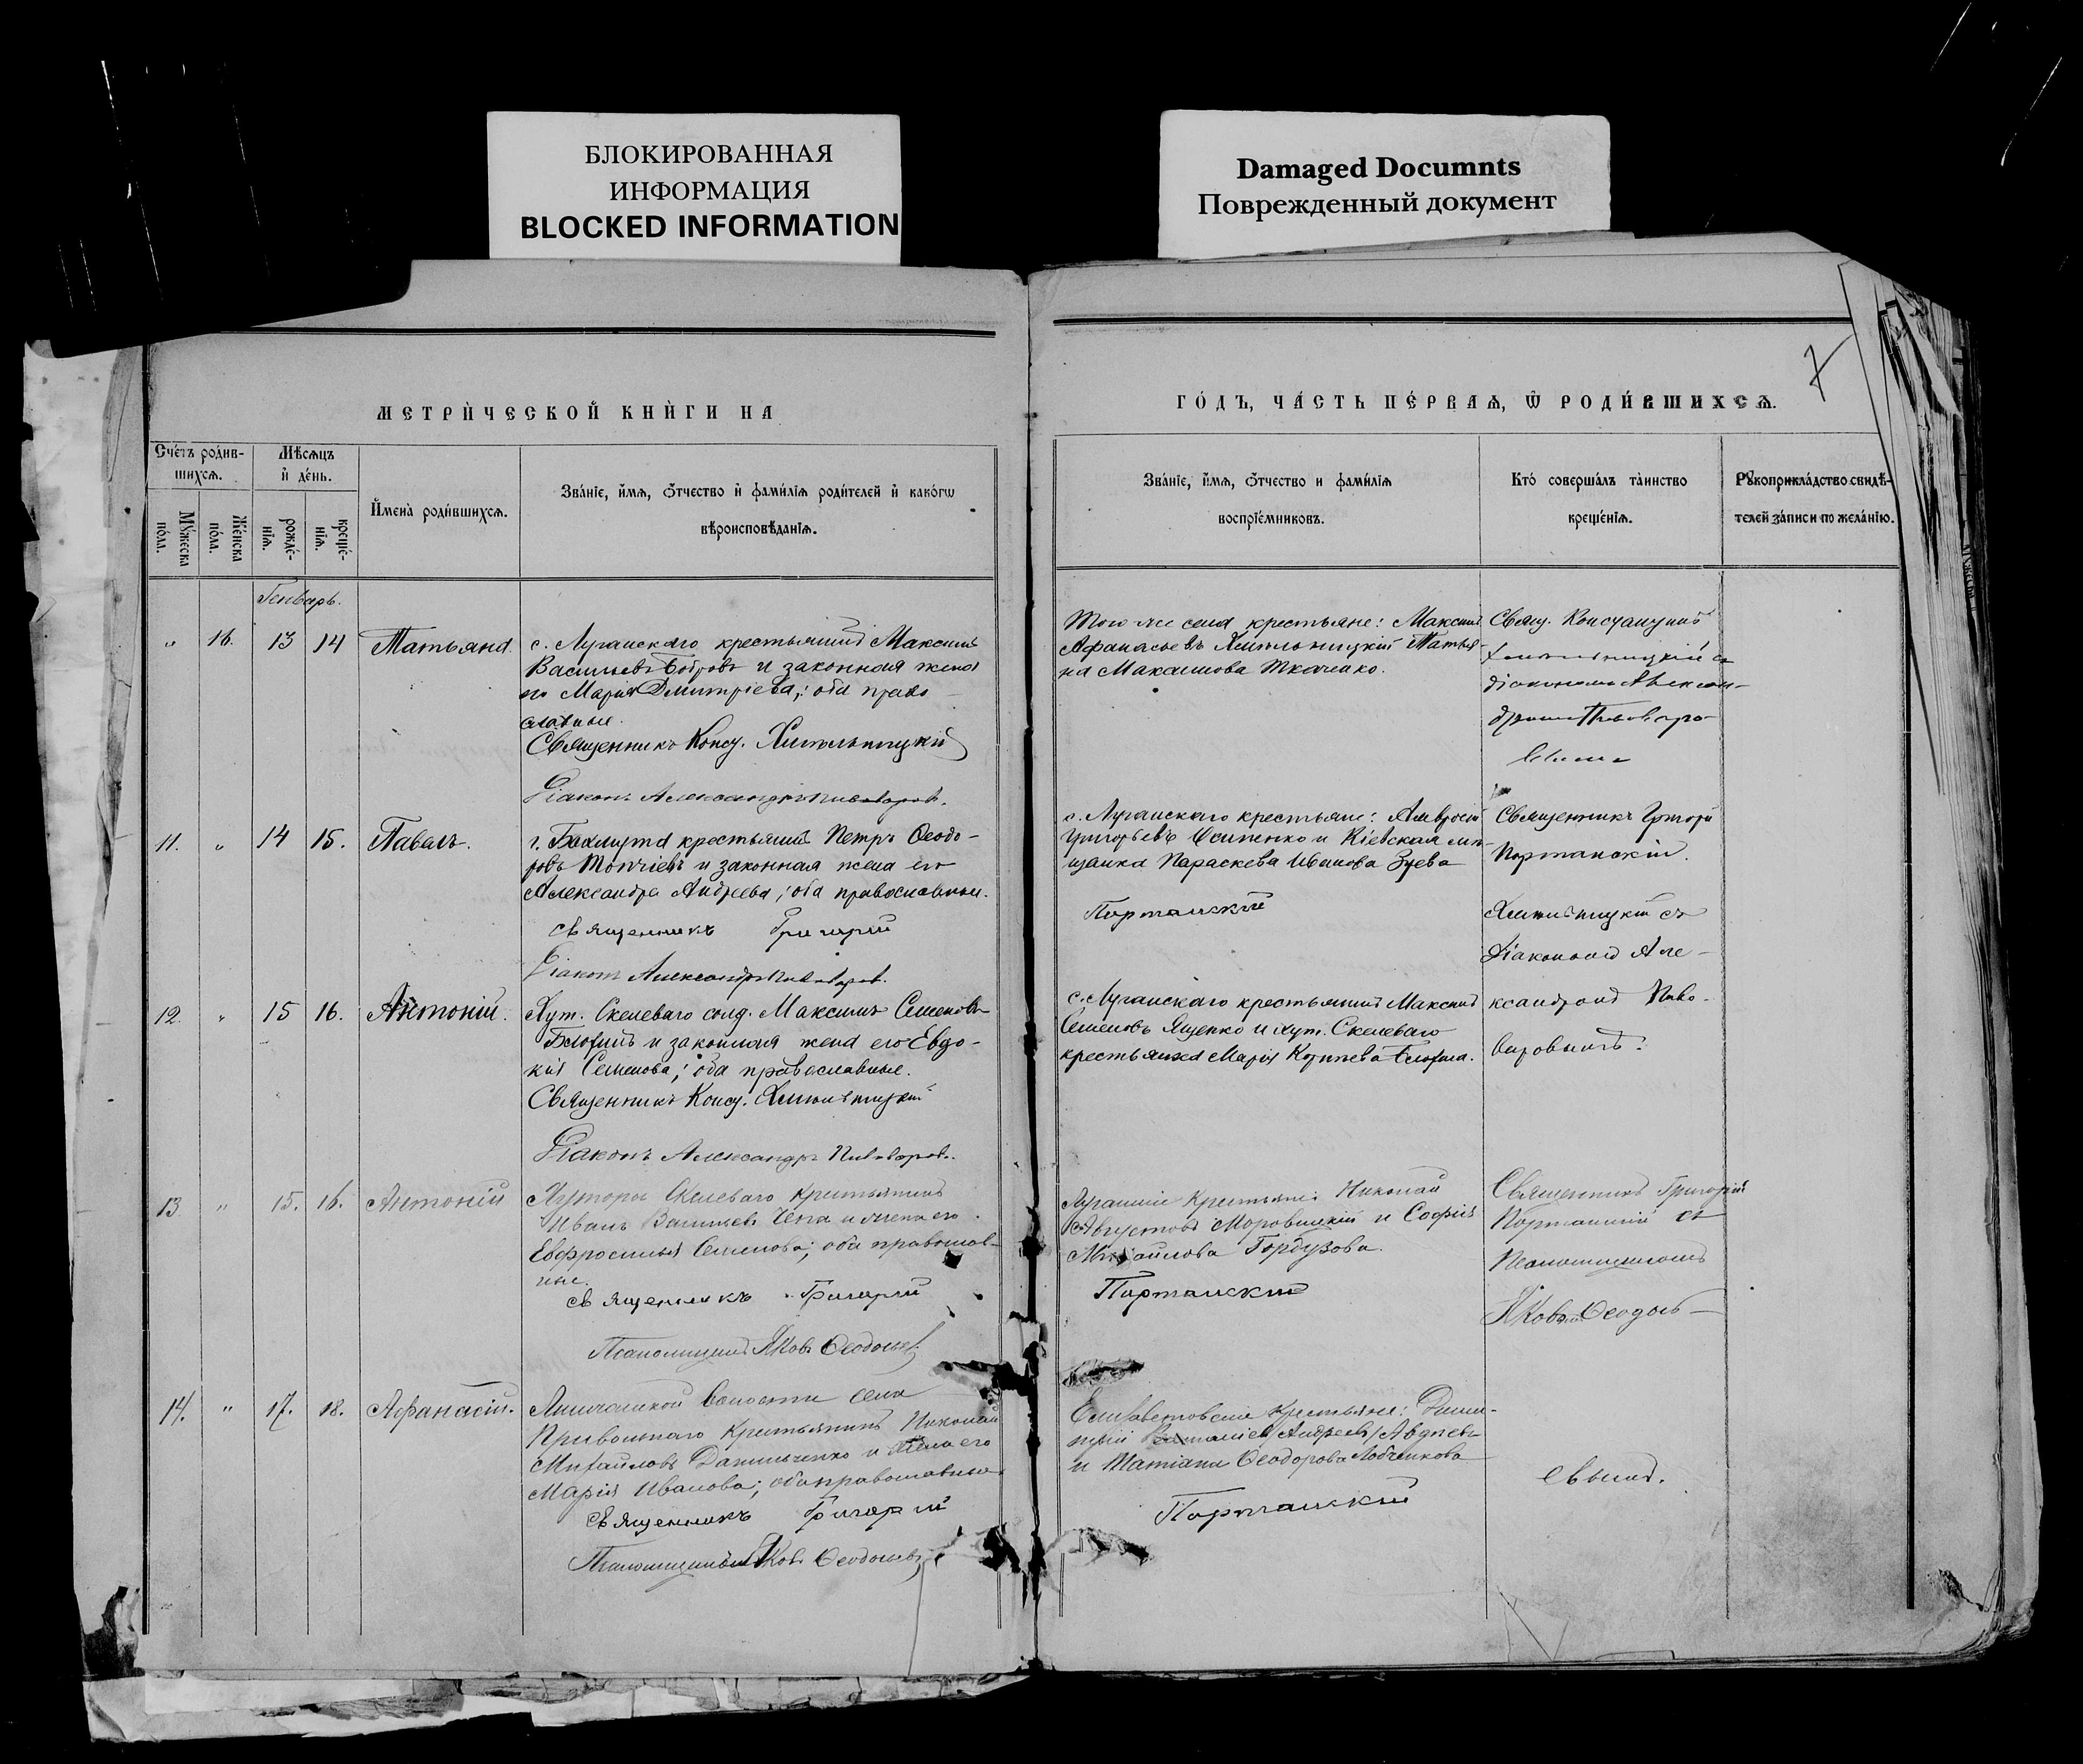 БЛОКИРОВАННАЯ
ИНФОРМАЦИЯ
BLOCKED INFORMATION
Damaged Documnts
Поврежденный документ
7
МЕТРИ́ЧЕСКОЙ КНИ́ГИ НА
ГО́ДЪ, ЧА́СТЬ ПЕ́РВАЯ, Ѿ РОДИ́ВШИХСЯ.
Сче́тъ роди́в-
шихся.
Мѣсяцъ
и҆ де́нь.
И҆мена̀ роди́вшихся.
Зва́нїе, и҆́мя, ѻ҆́тчество и҆ фами́лїя роди́телей и҆ како́гѡ
вѣроисповѣ́данїя.
Зва́нїе, и҆́мя, ѻ҆́тчество и фами́лїя
воспрїе́мниковъ.
Кто̀ соверша́лъ та́инство
креще́нїя.
Рꙋкоприкла́дство свидѣ́-
телей за́писи по жела́нїю.
Мꙋ́жеска
по́ла.
Же́нска
по́ла.
рожде́-
нїя.
креще́-
нїя.
Генварь.
" 16. 13 14 Татьяна.
с. Луганскаго крестьянинъ Максимъ
Васильевъ Бобровъ и законная жена
его Марія Дмитріева; оба право-
славные.
Священникъ Конст. Хитольницкій
Діаконъ Александръ Пивоваровъ.
Того же села крестьяне: Максимъ
Афанасьевъ Татья-
на Максимова Ткаченко.
Свящ. Константинъ
съ
діакономъ Алексан-
дромъ Пивоваро-
вымъ
11. " 14 15. Павелъ.
г. Бахмута крестьянинъ Петръ Ѳеодо-
ровъ Топчіевъ и законная жена его
Александра Андреева; оба православные.
Священникъ Григорій
Діаконъ Александръ Пивоваровъ.
с. Луганскаго крестьяне: Амвросій
Григорьевъ Осипенко и Кіевская мѣ-
щанка Параскева Иванова Зуева
Портанскій
Священникъ Григорій
Портанскій.
12. " 15 16. Антоній.
Хут. Скелеваго солд. Максимъ Семеновъ
и законная жена его Евдо-
кія Семенова; оба православные.
Священникъ Конст.
Діаконъ Александръ Пивоваровъ.
с. Луганскаго крестьянинъ Максимъ
Семеновъ Ященко и хут. Скелеваго
крестьянка Марія
съ
Діакономъ Але-
ксандромъ Пиво-
варовымъ.
13. " 15. 16. Антоній
Хутора Скелеваго крестьянинъ
Иванъ Васильевъ Чепа и жена его
Евфросинья Семенова; оба православ-
ные.
Священникъ Григорій
Псаломщикъ Яковъ Ѳеодосьевъ
Луганскіе крестьяне: Николай
Августовъ Моровицкій и Софія
Михайлова Горбузова.
Портанскій
Священникъ Григорій
Портанскій съ
Псаломщикомъ
Яковомъ Ѳеодось-
14. " 17. 18. Афанасій.
волости села
Привольнаго крестьянинъ Николай
Михайловъ Данильченко и жена его
Марія Иванова; оба православные.
Священникъ Григорій
Псаломщикъ Яковъ Ѳеодосьевъ
Елизаветовскіе крестьяне: Дими-
трій /Андреевъ/ Авдѣевъ
и Татіана Ѳеодорова Лобченкова
Портанскій
евымъ.